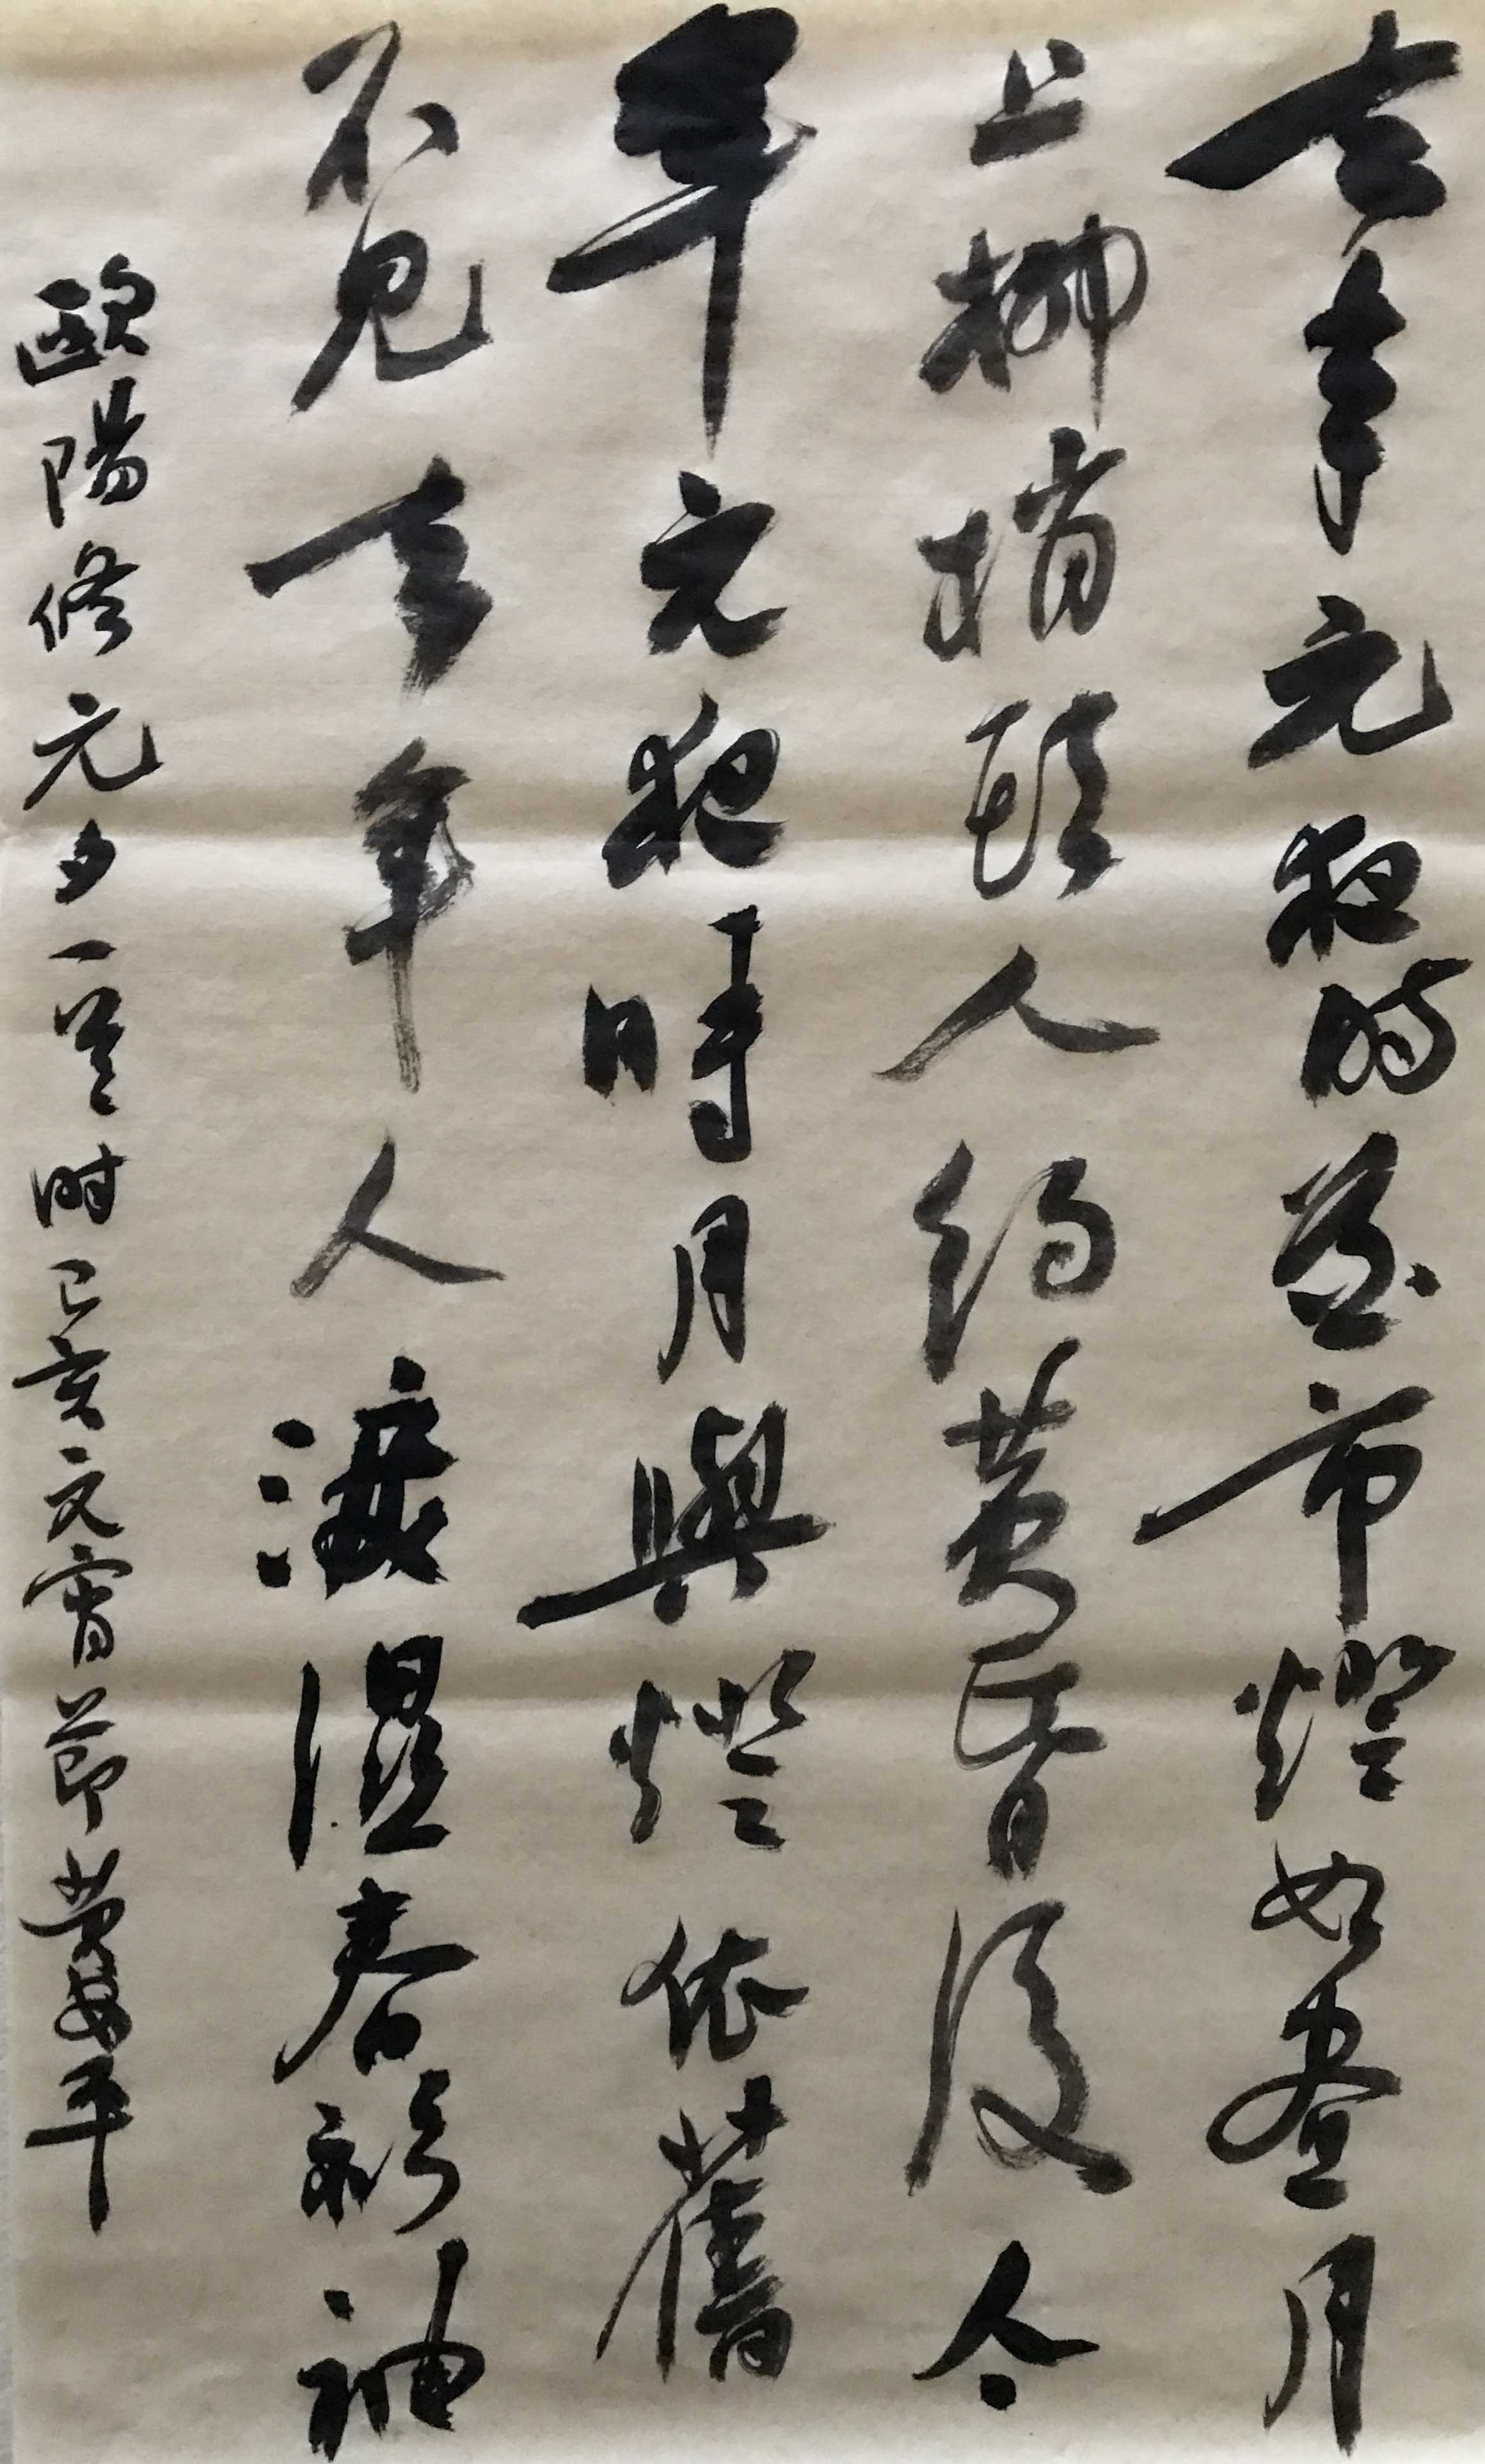 去年元夜時花市燈如晝月
上柳梢頭人約黄昏後今
年元夜時月與燈依舊
不見去年人淚濕春衫袖
歐陽修元夕一首时己亥元宵節黄安平